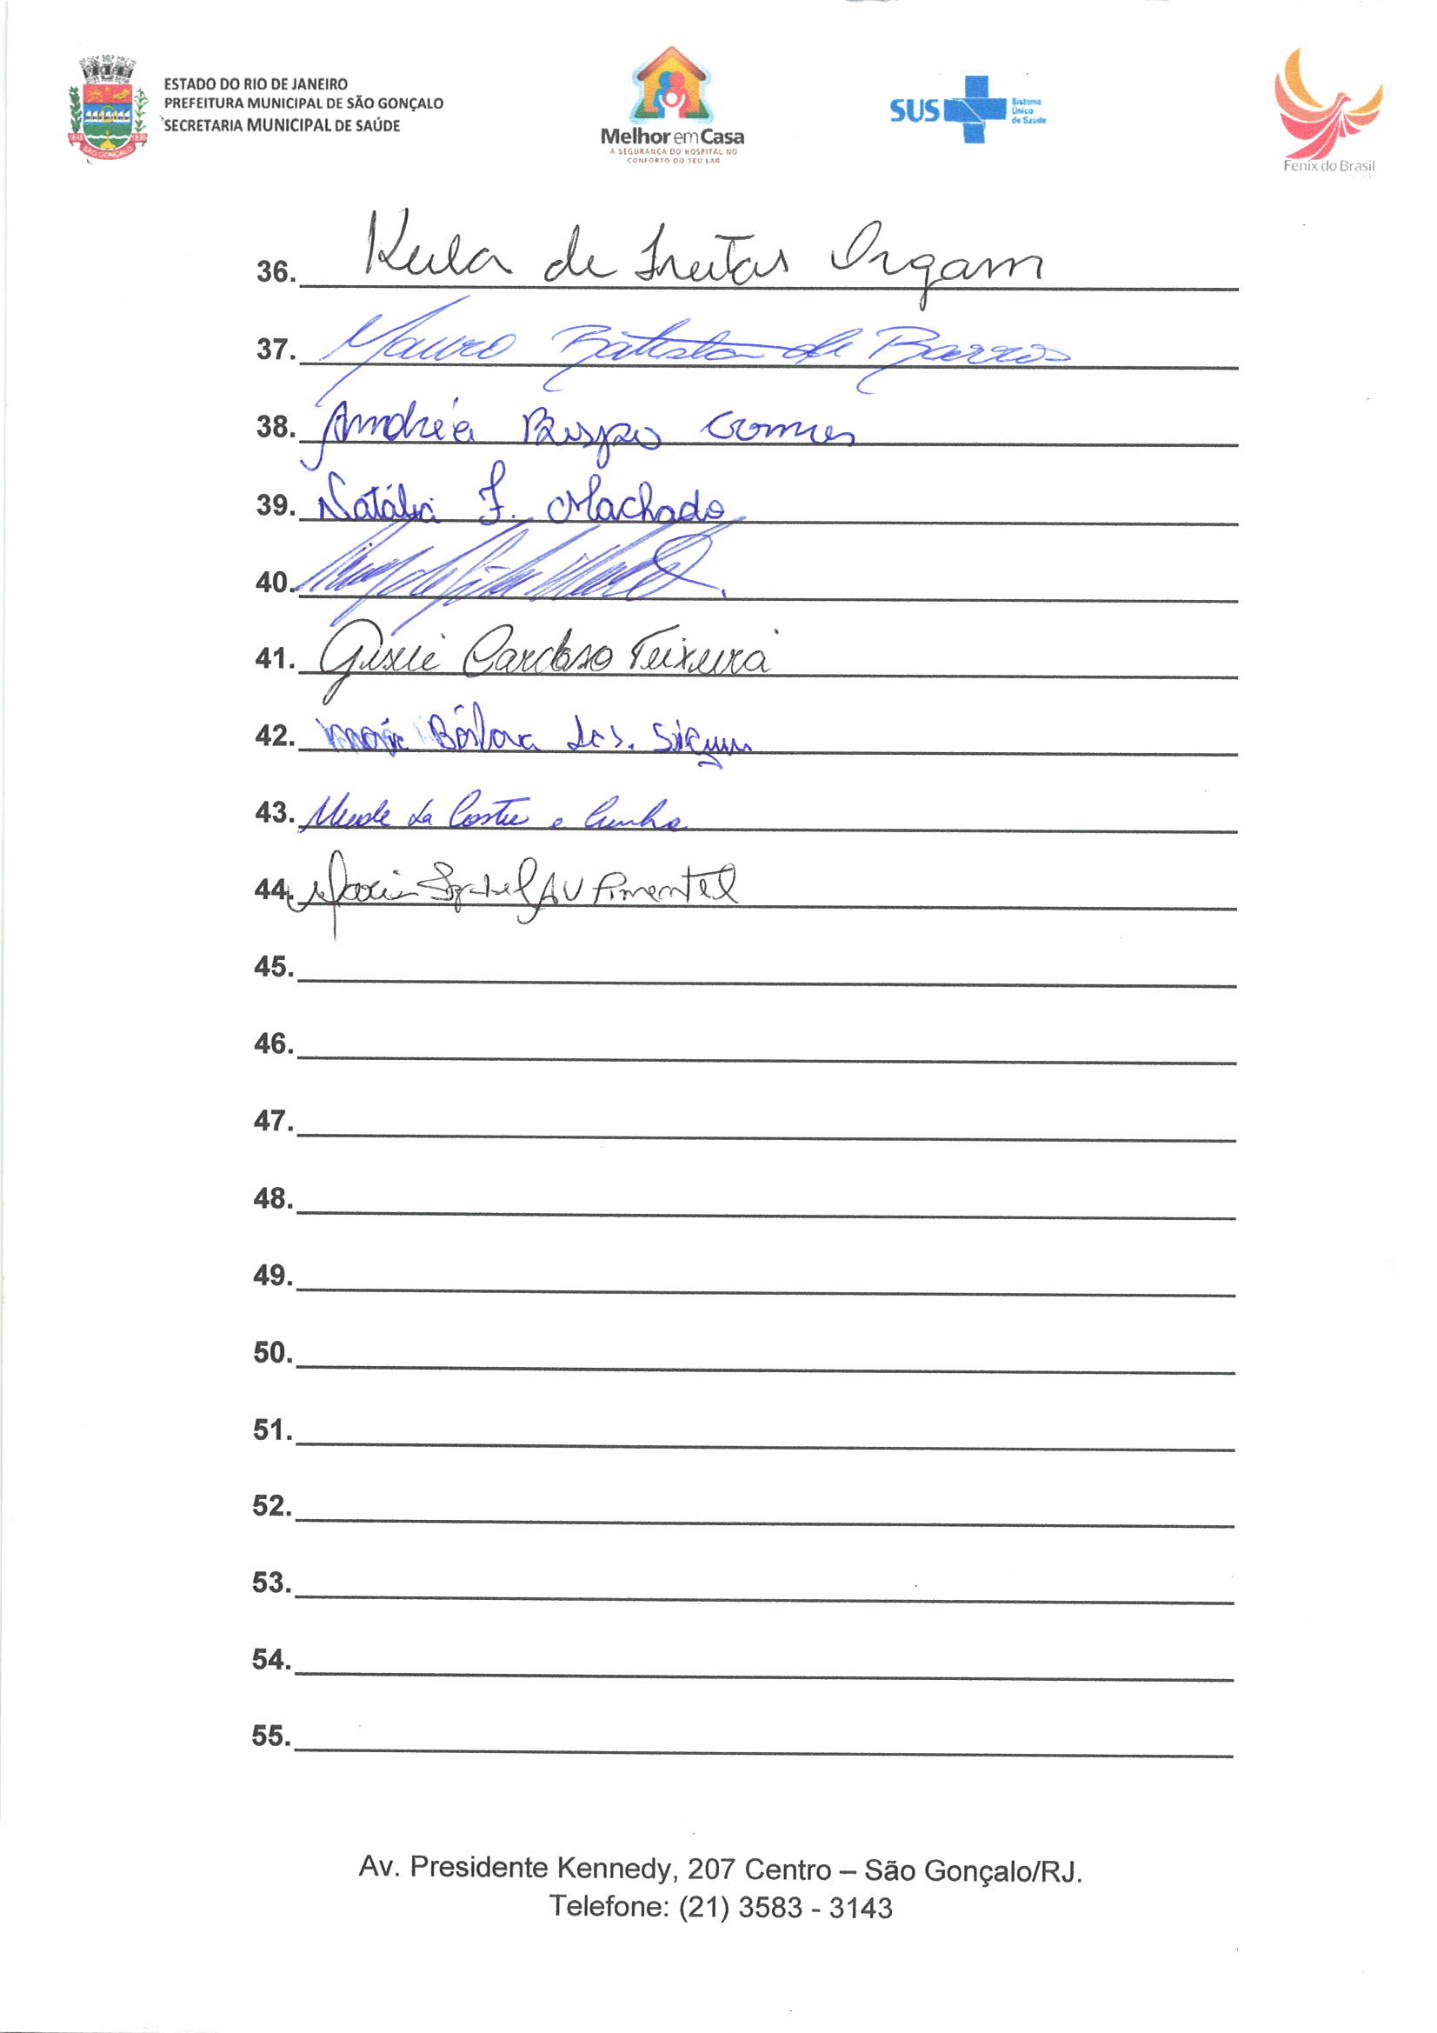 ESTADO DO RIO DE JANEIRO
PREFEITURA MUNICIPAL DE SÃO GONÇALO
SECRETARIA MUNICIPAL DE SAÚDE
SÃO GONÇALO
Melhor em Casa
A SEGURANÇA DO HOSPITAL NO
CONFORTO DO SEU LAR
SUS
Sistema
Único
de Saúde
Fenix do Brasil
36. de Freitas
37. Mauro Batista de Barros
38. Andréa Gomes
39. Natália F. Machado
40.
41. Cardoso Teixeira
42.
43. da Costa e Cunha
44. Maria Isabel Pimentel
45.
46.
47.
48.
49.
50.
51.
52.
53.
54.
55.
Av. Presidente Kennedy, 207 Centro – São Gonçalo/RJ.
Telefone: (21) 3583 - 3143